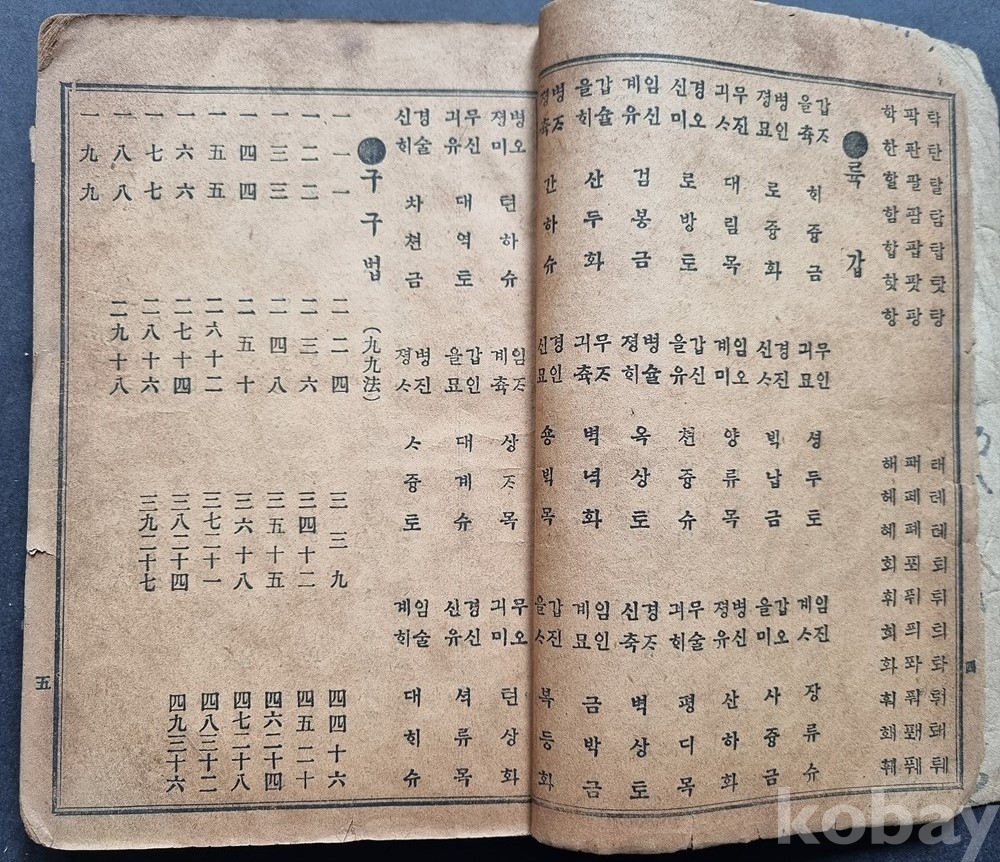 탁 탄 탈 탐 탑 탓 탕
팍 판 팔 팜 팝 팟 팡
학 한 할 함 합 핫 항
태 테 톄 퇴 튀 틔 톼 퉈 퇘 퉤
패 페 폐 푀 퓌 픠 퐈 풔 퐤 풰
해 헤 혜 회 휘 희 화 훠 홰 훼
●륙갑
갑ᄌᆞ 을츅 ᄒᆡ즁금
병인 졍묘 로즁화
무진 긔ᄉᆞ 대림목
경오 신미 로방토
임신 계유 검봉금
갑슐 을ᄒᆡ 산두화
병ᄌᆞ 졍츅 간하슈
무인 긔묘 셩두토
경진 신ᄉᆞ ᄇᆡᆨ납금
임오 계미 양류목
갑신 을유 쳔즁슈
병슐 졍ᄒᆡ 옥상토
무ᄌᆞ 긔츅 벽녁화
경인 신묘 숑ᄇᆡᆨ목
임진 계ᄉᆞ 장류슈
갑오 을미 사즁금
병신 졍유 산하화
무술 긔ᄒᆡ 평디목
경ᄌᆞ 신축 벽상토
임인 계묘 금박금
갑진 을ᄉᆞ 복등화
四
병오 졍미 텬하슈
무신 긔유 대역토
경술 신ᄒᆡ 차쳔금
임ᄌᆞ 계츅 상ᄌᆞ목
갑인 을묘 대계슈
병진 졍ᄉᆞ ᄉᆞ즁토
무오 긔미 텬상화
경신 신유 셕류목
임술 계ᄒᆡ 대ᄒᆡ슈
●구구법 (九九法)
一一一
一二二
一三三
一四四
一五五
一六六
一七七
一八八
一九九
二二四
二三六
二四八
二五十
二六十二
二七十四
二八十六
二九十八
三三九
三四十二
三五十五
三六十八
三七二十一
三八二十四
三九二十七
四四十六
四五二十
四六二十四
四七二十八
四八三十二
四九三十六
五
kobay